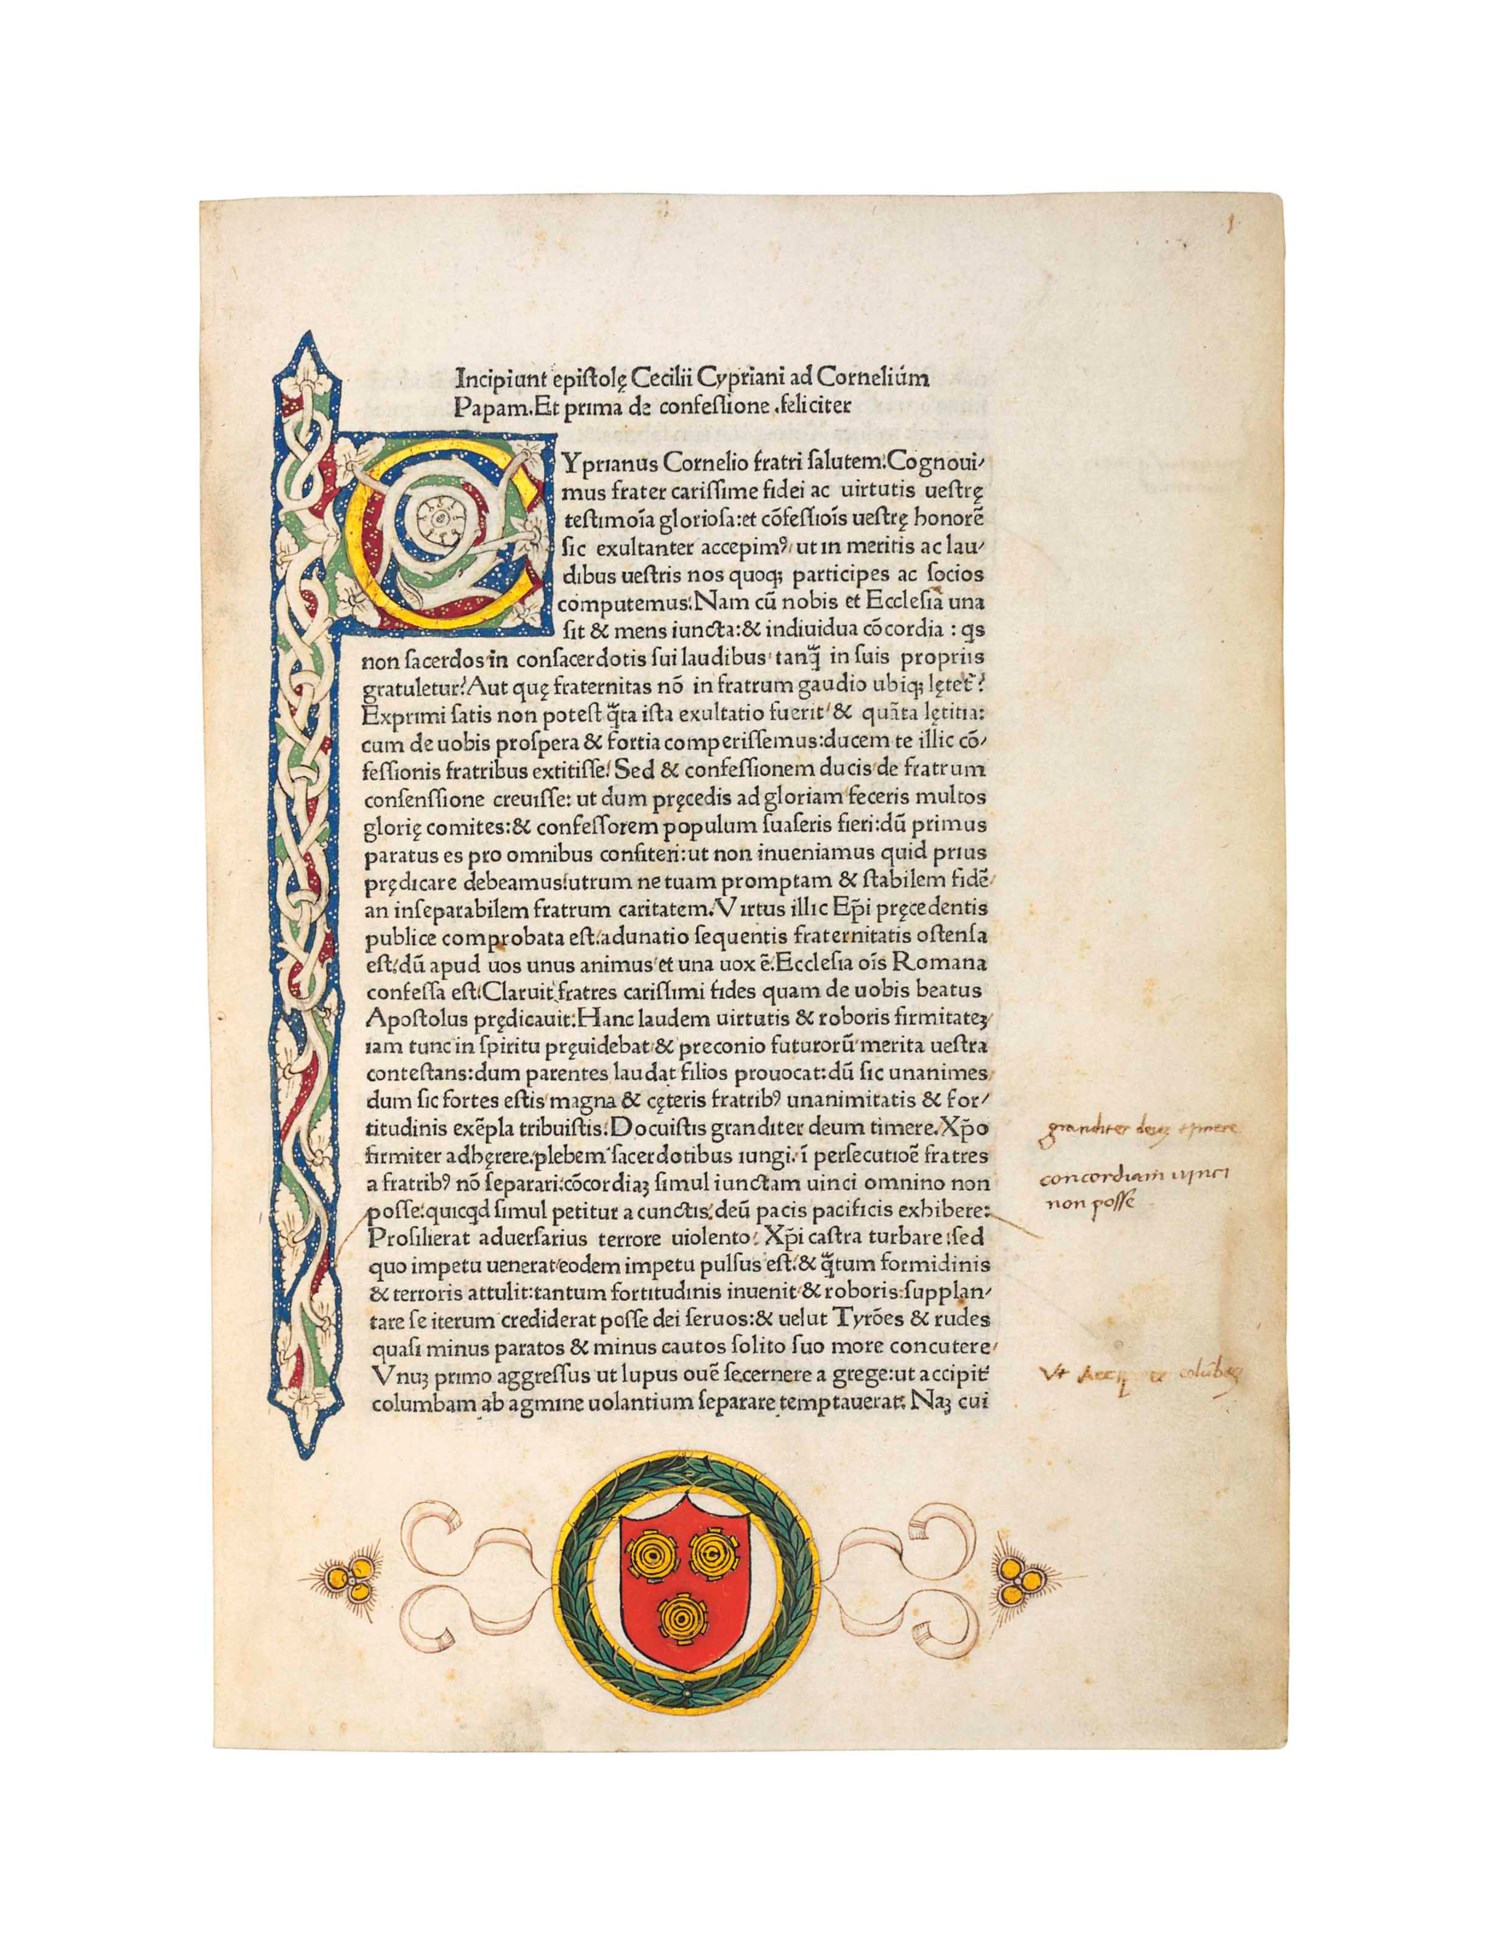 1
Incipiunt epiſtolę Cecilii Cypriani ad Cornelium
Papam.Et prima de confeſſione .feliciter
CYprianus Cornelio fratri ſalutem:Cognoui/
mus frater cariſſime fidei ac uirtutis ueſtrę
teſtimoīa glorioſa:et cōfeſſiōis ueſtrę honorē
ſic exultanter accepimꝰ/ut in meritis ac lau/
dibus ueſtris nos quoqꝫ participes ac ſocios
computemus:Nam cū nobis et Eccleſia una
ſit & mens iuncta:& indiuidua cōcordia : qs
non ſacerdos in conſacerdotis ſui laudibus tanq̄ in ſuis propriis
gratuletur?Aut quę fraternitas nō in fratrum gaudio ubiqꝫ lętet̄?
Exprimi ſatis non poteſt q̄ta iſta exultatio fuerit/& quāta lętitia:
cum de uobis proſpera & fortia comperiſſemus:ducem te illic cō/
feſſionis fratribus extitiſſe/Sed & confeſſionem ducis de fratrum
conſenſſione creuiſſe: ut dum pręcedis ad gloriam feceris multos
glorię comites:& confeſſorem populum ſuaſeris fieri:dū primus
paratus es pro omnibus confiteri:ut non inueniamus quid prius
prędicare debeamus:utrum ne tuam promptam & ſtabilem fidē/
an inſeparabilem fratrum caritatem.Virtus illic Ep̄i pręcedentis
publice comprobata eſt:adunatio ſequentis fraternitatis oſtenſa
eſt:dū apud uos unus animus et una uox ē.Eccleſia oīs Romana
confeſſa eſt:Claruit fratres cariſſimi fides quam de uobis beatus
Apoſtolus prędicauit:Hanc laudem uirtutis & roboris firmitateꝫ
iam tunc in ſpiritu pręuidebat & preconio futurorū merita ueſtra
conteſtans:dum parentes laudat filios prouocat:dū ſic unanimes
dum ſic fortes eſtis magna & cęteris fratribꝰ unanimitatis & for/
titudinis exēpla tribuiſtis:Docuiſtis granditer deum timere.Xp̄o
firmiter adhęrere.plebem ſacerdotibus iungi.ī perſecutiōe fratres
a fratribꝰ nō ſeparari:cōcordiaꝫ ſimul iunctam uinci omnino non
poſſe:quicqd ſimul petitur a cunctis:deū pacis pacificis exhibere:
Proſilierat aduerſarius terrore uiolento: Xp̄i caſtra turbare:ſed
quo impetu uenerat eodem impetu pulſus eſt:& q̄tum formidinis
& terroris attulit:tantum fortitudinis inuenit & roboris:ſupplan/
tare ſe iterum crediderat poſſe dei ſeruos:& uelut Tyrōes & rudes
quaſi minus paratos & minus cautos ſolito ſuo more concutere/
Vnuꝫ primo aggreſſus ut lupus ouē ſecernere a grege:ut accipit̄
columbam ab agmine uolantium ſeparare temptauerat: Naꝫ cui
granditer deuꝫ timere
concordiam uinci
non poſſe
Vt